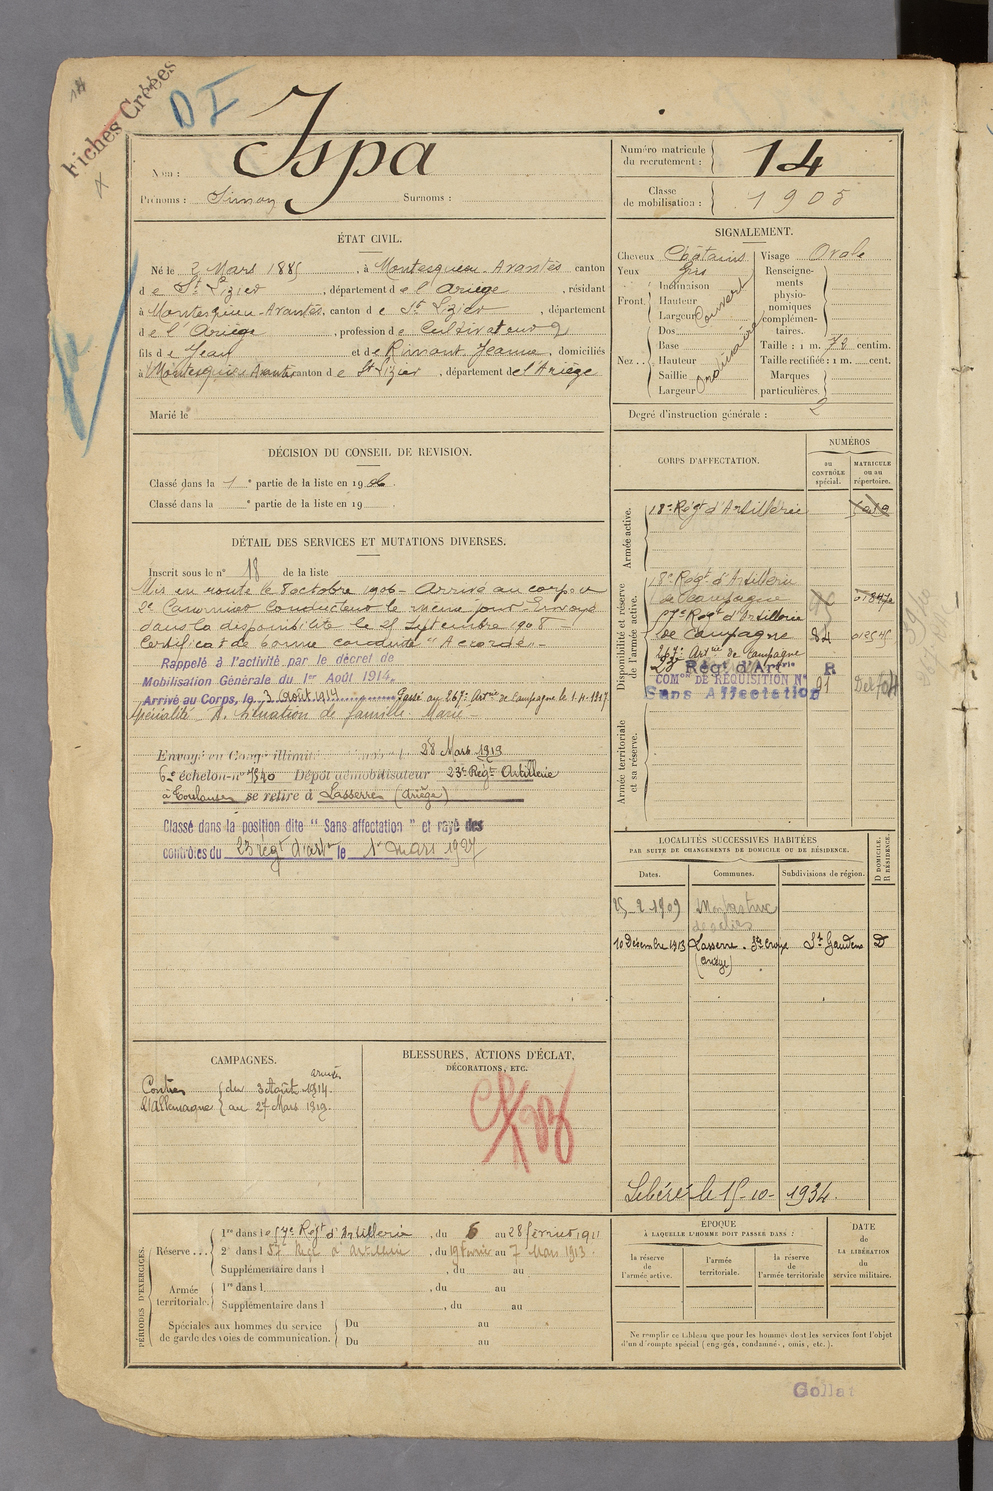 14
Fiches Créées
D I
Nom : Ispa
Prénoms : Simon Surnoms :
Numéro matricule du recrutement : 14
Classe de mobilisation : 1905
ÉTAT CIVIL.
Né le 2 Mars 1885, à Montesquieu-Avantès canton
de St Lizier, département de l'Ariège, résidant
à Montesquieu-Avantès, canton de St Lizier, département
de l'Ariège, profession de Cultivateur
fils de Jean et de Jeanne, domiciliés
à Montesquieu Avantès canton de St Lizier, département de l'Ariège
Marié le
SIGNALEMENT.
Cheveux Châtains
Yeux gris
Front. Inclinaison
Hauteur Couvert
Largeur
Nez. Dos
Base ordinaire
Hauteur
Saillie
Largeur
Visage Ovale
Renseignements physionomiques complémentaires.
Taille : 1 m. 72 centim.
Taille rectifiée : 1 m. cent.
Marques particulières.
Degré d'instruction générale : 2
DÉCISION DU CONSEIL DE REVISION.
Classé dans la 1e partie de la liste en 1906.
Classé dans la e partie de la liste en 19
DÉTAIL DES SERVICES ET MUTATIONS DIVERSES.
Inscrit sous le n° 18 de la liste
Mis en route le 8 octobre 1906 - Arrivé au corps et
2e Canonnier conducteur le même jour. Envoyé
dans la disponibilité le 25 Septembre 1908 -
Certificat de bonne conduite "Accordé" -
Rappelé à l'activité par le décret de
Mobilisation Générale du 1er Août 1914,
Arrivé au Corps, le 3 Août 1914 Passé au 267e Artrie de Campagne le 1-4-1917
Spécialité A. Situation de famille. Marié -
Envoyé en Congé illimité 28 Mars 1919
6e échelon-n° 1540 Dépôt démobilisateur 23e Régt Artillerie
à Toulouse se retire à Lasserre (Ariège)
Classé dans la position dite "Sans affectation" et rayé des
contrôles du 23 régt d'artie le 1er mars 1927
CORPS D'AFFECTATION.
NUMÉROS
au CONTRÔLE spécial.
MATRICULE ou au répertoire.
Armée active.
18e Régt d'Artillerie
Disponibilité et réserve de l'armée active.
18e Régt d'Artillerie
de Campagne
57e Régt d'Artillerie
de Campagne 84
267e Artrie de Campagne
23e Régt d'Artrie R
COMon DE RÉQUISITION N° 91
Sans Affectation
Armée territoriale et sa réserve.
LOCALITÉS SUCCESSIVES HABITÉES
PAR SUITE DE CHANGEMENTS DE DOMICILE OU DE RÉSIDENCE.
Dates. Communes. Subdivisions de région. D DOMICILE. R RÉSIDENCE.
25-2-1909 Montastruc
de Salies
10 Décembre 1913 Lasserre. Ste Croix St Gaudens D
(Ariège)
Libéré le 15-10-1934.
CAMPAGNES.
Contre l'Allemagne { du 3 Août 1914.
au 27 Mars 1919.
armées
BLESSURES, ACTIONS D'ÉCLAT,
DÉCORATIONS, ETC.
PÉRIODES D'EXERCICES.
Réserve...
1re dans le 57e Régt d'Artillerie, du 6 au 28 février 1911
2e dans l 57e Régt d'Artillerie, du 19 février au 7 Mars 1913.
Supplémentaire dans l , du au
Armée territoriale.
1re dans l , du au
Supplémentaire dans l , du au
Spéciales aux hommes du service de garde des voies de communication.
Du au
Du au
ÉPOQUE
À LAQUELLE L'HOMME DOIT PASSER DANS :
la réserve de l'armée active.
l'armée territoriale.
la réserve de l'armée territoriale
DATE DE LA LIBÉRATION du service militaire.
Ne remplir ce tableau que pour les hommes dont les services font l'objet
d'un décompte spécial (engagés, condamnés, omis, etc.).